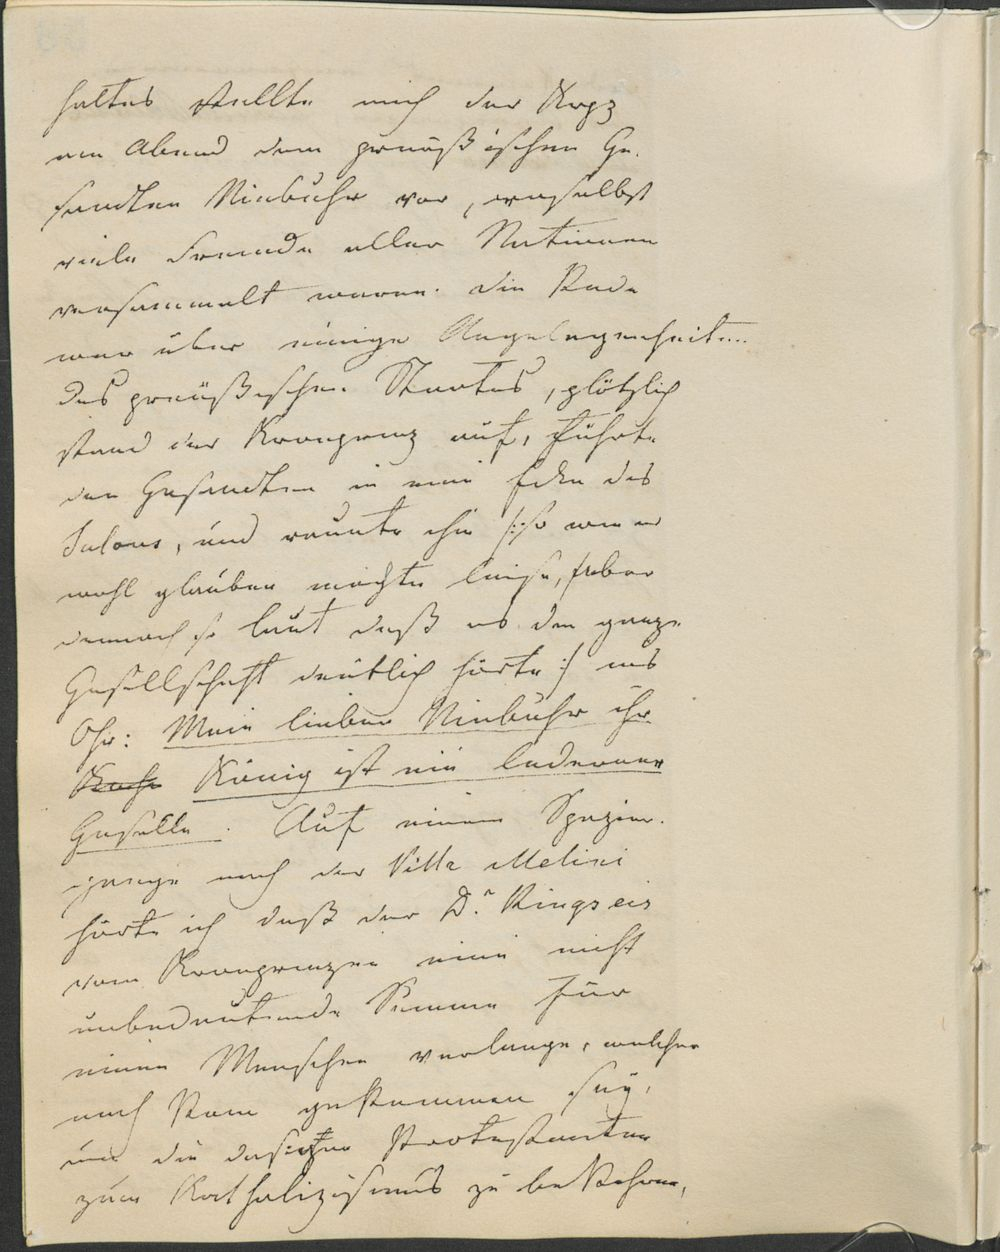 haltes stellte mich der Krpz
am Abend dem preußischen Ge-
sandten Niebuhr vor, woselbst
viele Fremde aller Nationen
versammelt waren. Die Rede
war über einige Angelegenheiten
des preußischen Staates, plötzlich
stand der Kronprinz auf, führte
den Gesandten in eine Ecke des
Salons, und raunte ihm /: so wie er
wohl glauben mochte leise, aber
dennoch so laut daß es die ganze
Gesellschaft deutlich hörte :/ ins
Ohr: Mein lieber Niebuhr ihr
König ist ein lederner
Geselle. Auf einem Spazier-
gange nach der Villa Melini
hörte ich daß der Dr. Ringseis
vom Kronprinzen eine nicht
unbedeutende Summe für
einen Menschen verlange, welcher
nach Rom gekommen sey,
um die dasigen Protestanten
zum Katholizismus zu bekehren,